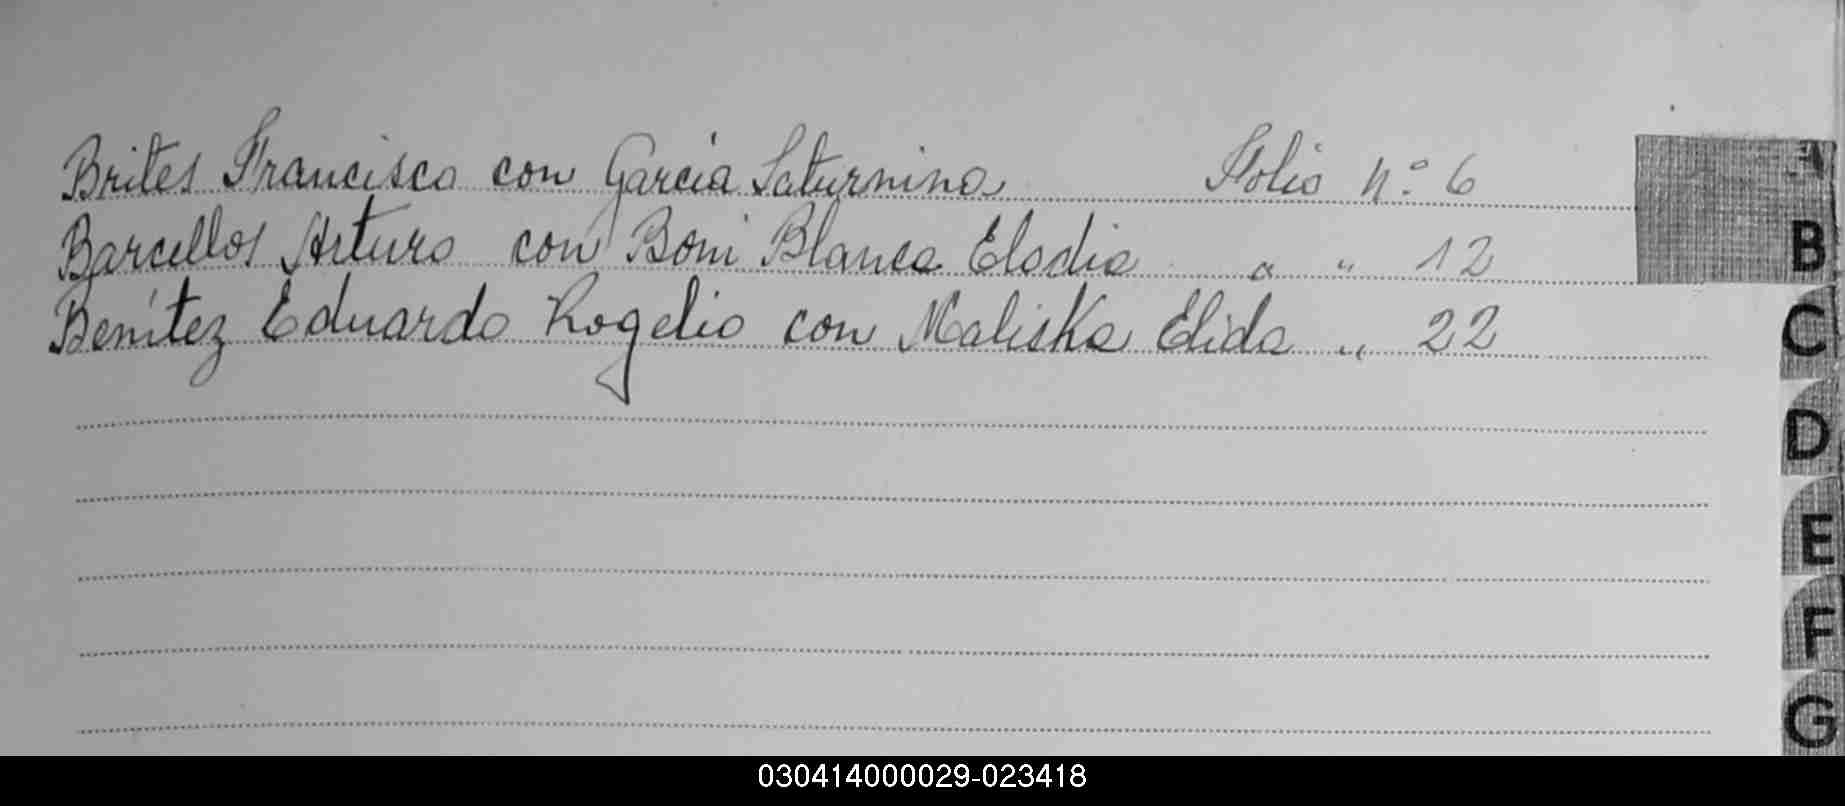 Brites Francisco con García Saturnina Folio n° 6
Barcellos Arturo con Boni Blanca Elodia " " 12
Benítez Eduardo Rogelio con Maliska Elida " 22
A
B
C
D
E
F
G
030414000029-023418